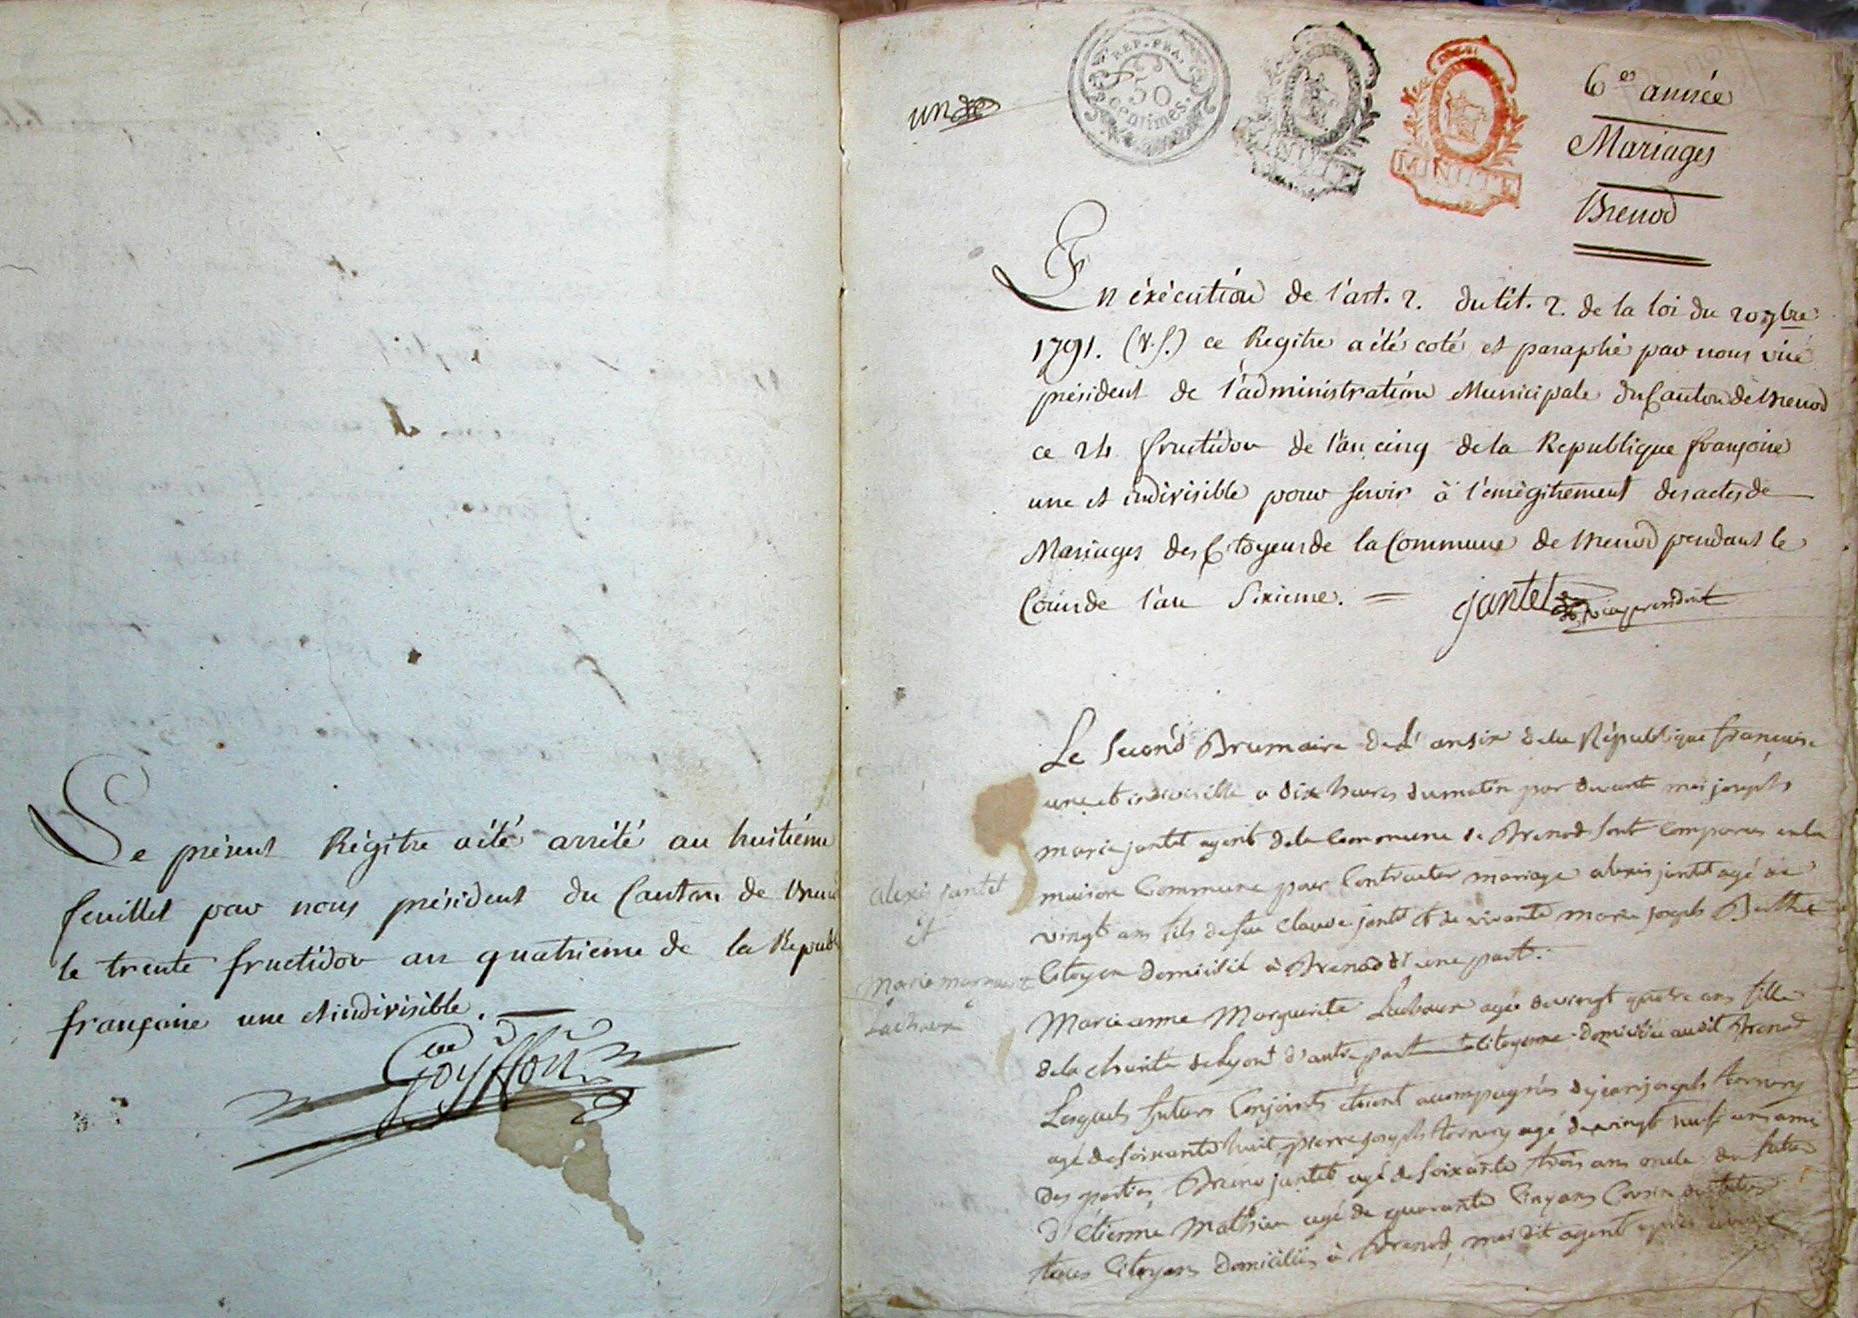 Le présent Régitre a été arrété au huitiéme
feuillet par nous président du Canton de Bren
le trente fructidor an quatrieme de la Repub
françoise une et indivisible.
Goyffon
un
REP. FRA.
50
centimes.
MINUTE
MINUTE
6e année
Mariages
Brenod
En éxécution de l'art. 2. du tit. 2. de la loi du 20 7bre
1791. (V.S.) ce Regitre a été coté et paraphé par nous vice
président de l'administration Municipale du Canton de Brenod
ce 24 fructidor de l'an cinq de la Republique françoise
une et indivisible pour servir à l'enrégitrement des actes de
Mariages des Citoyens de la Commune de Brenod pendant le
Cours de l'an Sixieme. =
jantet vice president
Le second Brumaire de l'an six de la République françoise
une et indivisible a dix heures du matin par devant moi joseph
marie jantet agent de la Commune de Brenod sont comparus en la
maison Commune pour Contracter mariage alexis jantet agé de
vingt ans fils de feu Claude jantet et de vivante marie joseph Berthet
Citoyen domicilié à Brenod d'une part.
alexis jantet
et
Marie marguerite
Marie anne Marguerite agée de vingt quatre ans fille
de la charité de Lyont d'autre part Citoyenne domiciliée audit Brenod
Lesquels futurs Conjoints étoient accompagnés de jean joseph
agé de soixante huit, pierre joseph agé de vingt huit ans amis
des parties, Bruno jantet agé de soixante trois ans oncle du futur
d'Etienne Mathieu agé de quarante Cinq ans Cousin du futur
tous Citoyens domiciliés à Brenod, moi dit agent après avoir